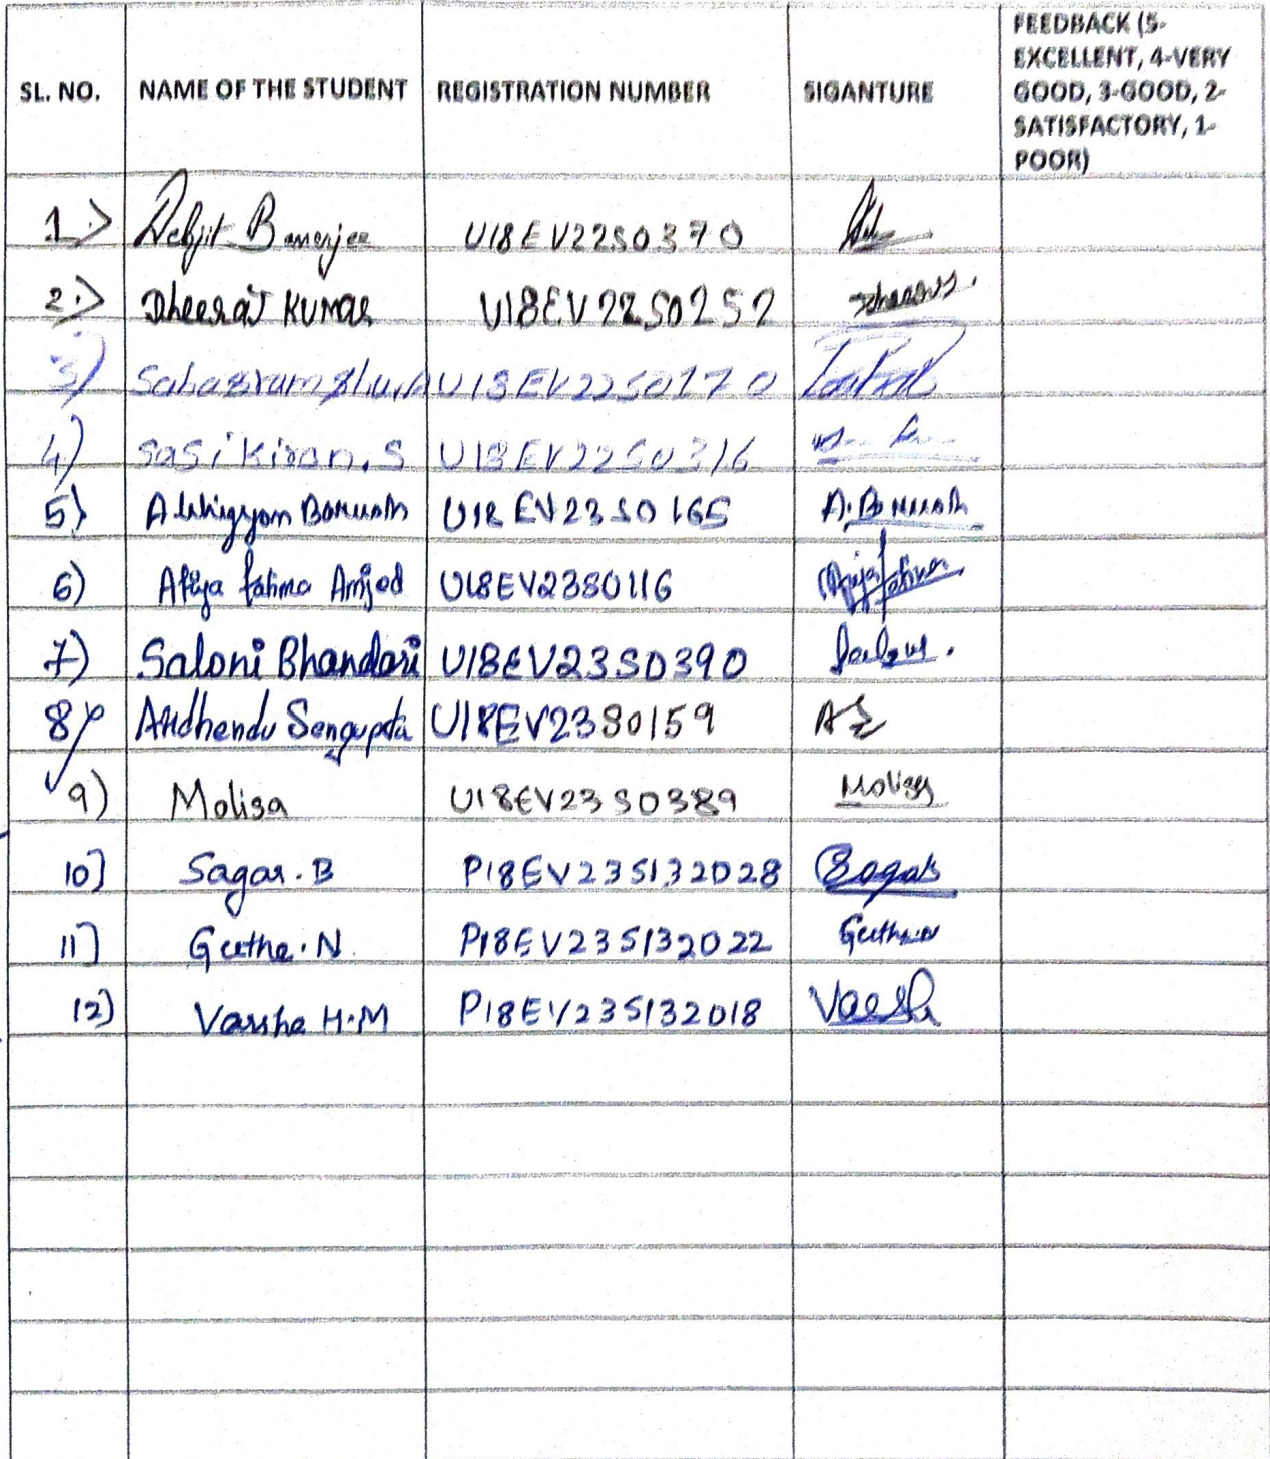 SL. NO. NAME OF THE STUDENT REGISTRATION NUMBER SIGANTURE FEEDBACK (5-
EXCELLENT, 4-VERY
GOOD, 3-GOOD, 2-
SATISFACTORY, 1-
POOR)
1.> Debjit Banerjee U18EV22S0370
2.> Dheeraj KUMAR U18EV22S0252
3) U18EV22S0170
4) Sasi Kiran. S U18EV22S0316
5) Abhigyan Baruah U18EV23S0165 A. Baruah
6) Afiya fatima Amjed U18EV23S0116
7) Saloni Bhandari U18EV23S0390
8) Ardhendu Sengupta U18EV23S0159 AS
9) Molisa U18EV23S0389 Molisa
10] Sagar. B P18EV23S132028 Sagar
11] Geetha. N P18EV23S132022 Geetha.N
12) Varsha H.M P18EV23S132018 Varsha